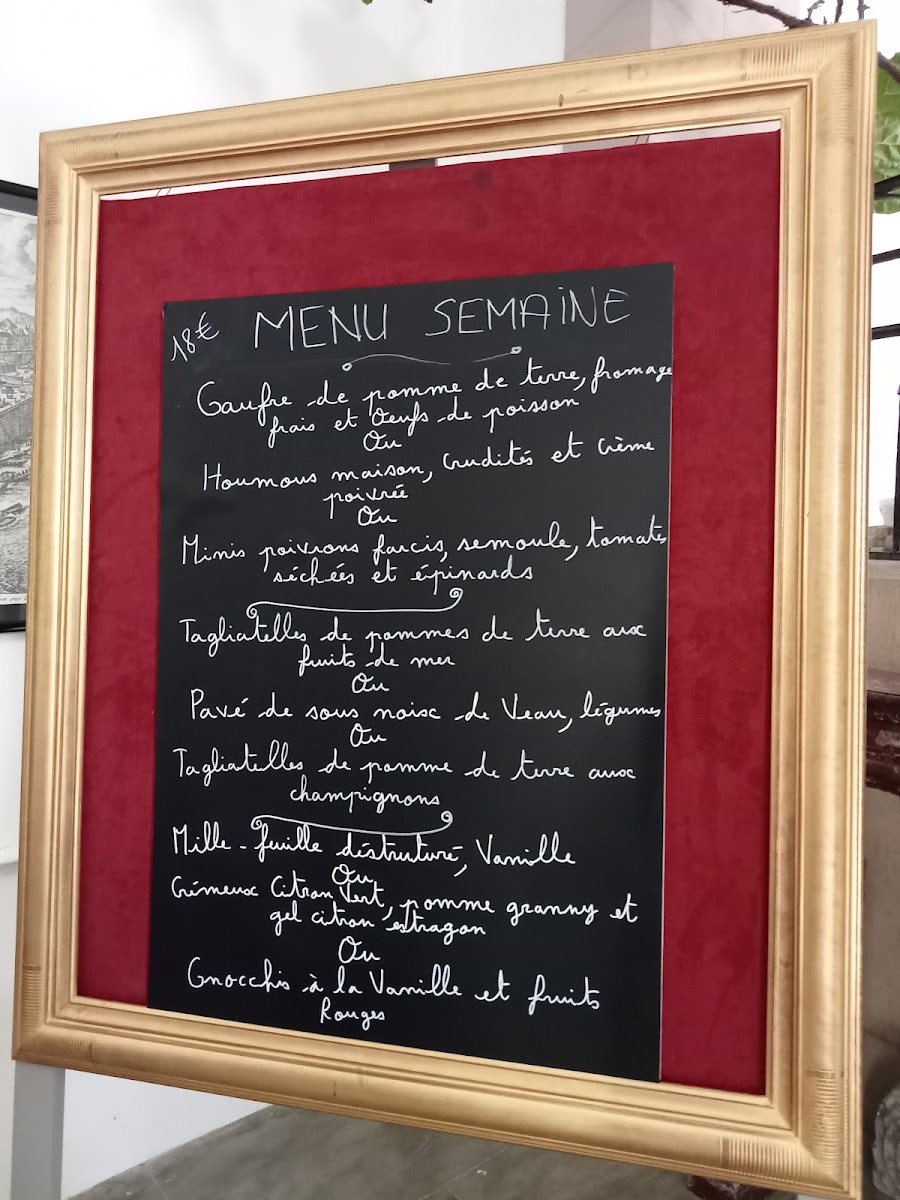 18€ MENU SEMAINE
Gaufre de pomme de terre, fromage
frais et Oeufs de poisson
Ou
Houmous maison, Crudités et Crème
poivrée
Ou
Minis poivrons farcis, semoule, tomates
séchées et épinards
Tagliatelles de pommes de terre aux
fruits de mer
Ou
Pavé de sous noix de Veau, légumes
Ou
Tagliatelles de pomme de terre aux
champignons
Mille-feuille déstruturé, Vanille
Ou
Crémeux Citron Vert, pomme granny et
gel citron estragon
Ou
Gnocchis à la Vanille et fruits
Rouges